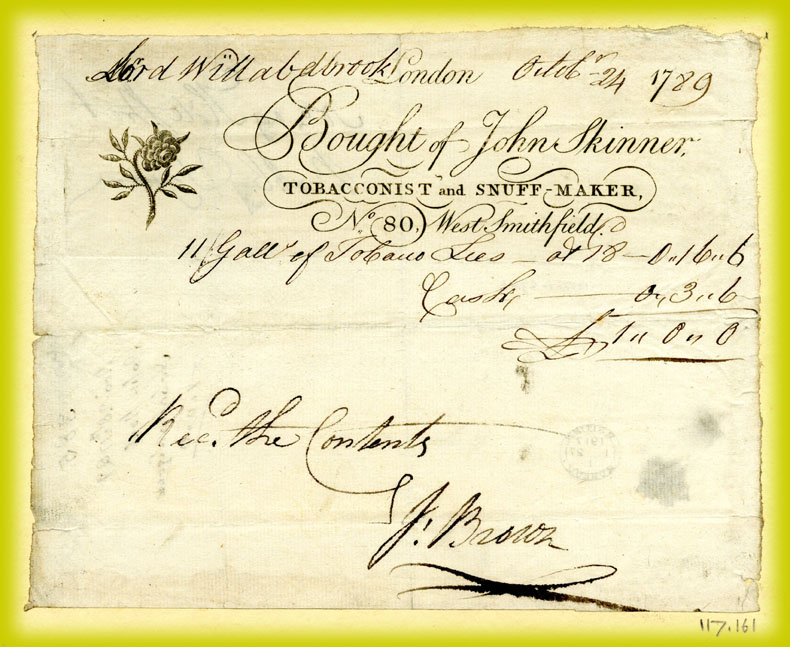 Lord Willabdbrook London Octobr 24 1789
Bought of John Skinner,
TOBACCONIST and SNUFF-MAKER,
No. 80, West Smithfield.
11 Galls of Tobaco Lees — at 18 — 0„16„6
Cask — 0„3„6
£1„0„0
Recd. the Contents
J: Brown
117.161